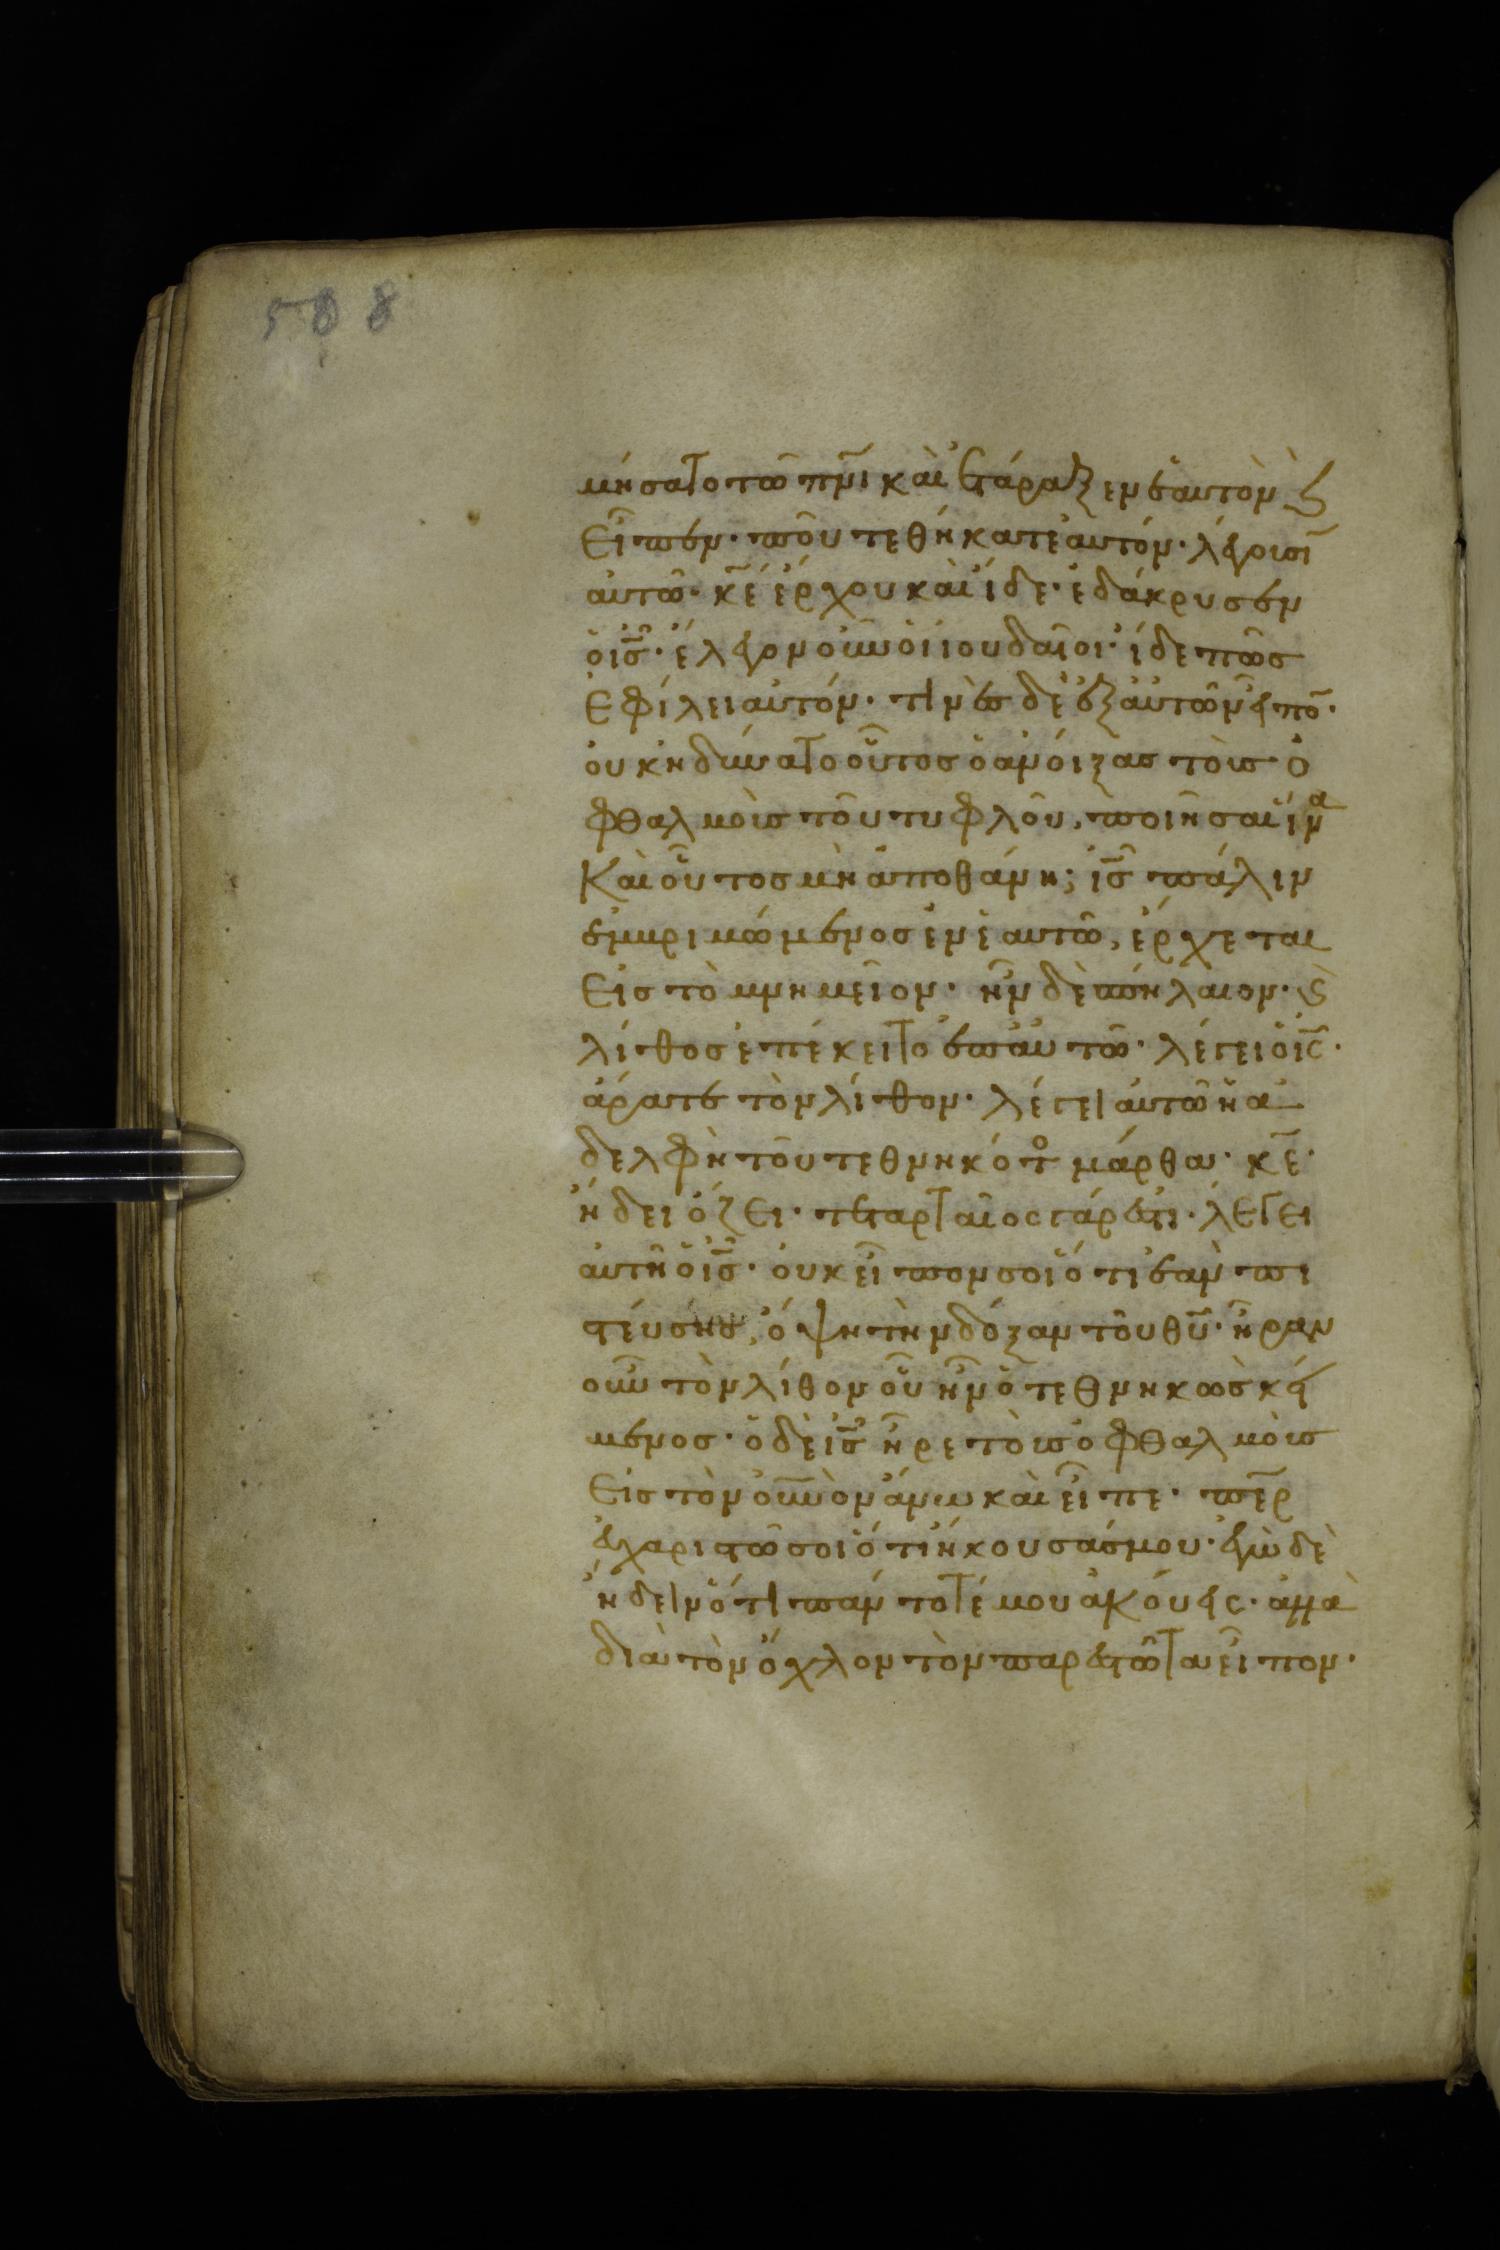 508
μήσατο τῶ πνι καὶ ἐτάραξεν ἑαυτὸν ϗ
εἶπεν· ποῦ τεθήκατε αυτόν· λέγουσιν
αυτῶ· κε έρχου καὶ ίδε· ἐδάκρυσεν
ὁ ις· έλεγον οῦν ὁι ιουδαῖοι· ίδε πῶς
ἐφίλει αυτόν· τινὲς δὲ ἐξ αυτῶν εἶπο·
ουκ ηδύνατο οὗτος ὁ ανοίξας τοὺς ὀ
φθαλμοὺς τοῦ τυφλοῦ, ποιῆσαι ἵνα
Καὶ οὗτος μὴ αποθάνη; ις πάλιν
εμβριμώμενος εν ἑαυτῶ, έρχεται
εις τὸ μνημεῖον· ῆν δὲ σπήλαιον· ϗ
λίθος επέκειτο επ αυτῶ· λέγει ὁ ις·
άρατε τὸν λίθον· λέγει αυτῶ ἡ α
δελφὴ τοῦ τεθνηκότος μάρθα· κε·
ήδει όζει· τεταρταῖος γάρ εστι· λέγει
αυτῆ ὁ ις· ουκ εῖπον σοι ὅτι εαν πι
στεύσης, όψη τὴν δόξαν τοῦ θυ· ῆραν
οῦν τὸν λίθον οὗ ῆν ὁ τεθνηκὼς κεί
μενος· ὁ δὲ ις ῆρε τοὺς οφθαλμοὺς
εις τὸν ουνον άνω καὶ εῖπε· περ
ευχαριστῶ σοι ὅτι ήκουσάς μου· εγὼ δὲ
ήδειν ὅτι πάντοτέ μου ακούεις· αλλὰ
διὰ τὸν όχλον τὸν παρεστῶτα εῖπον·